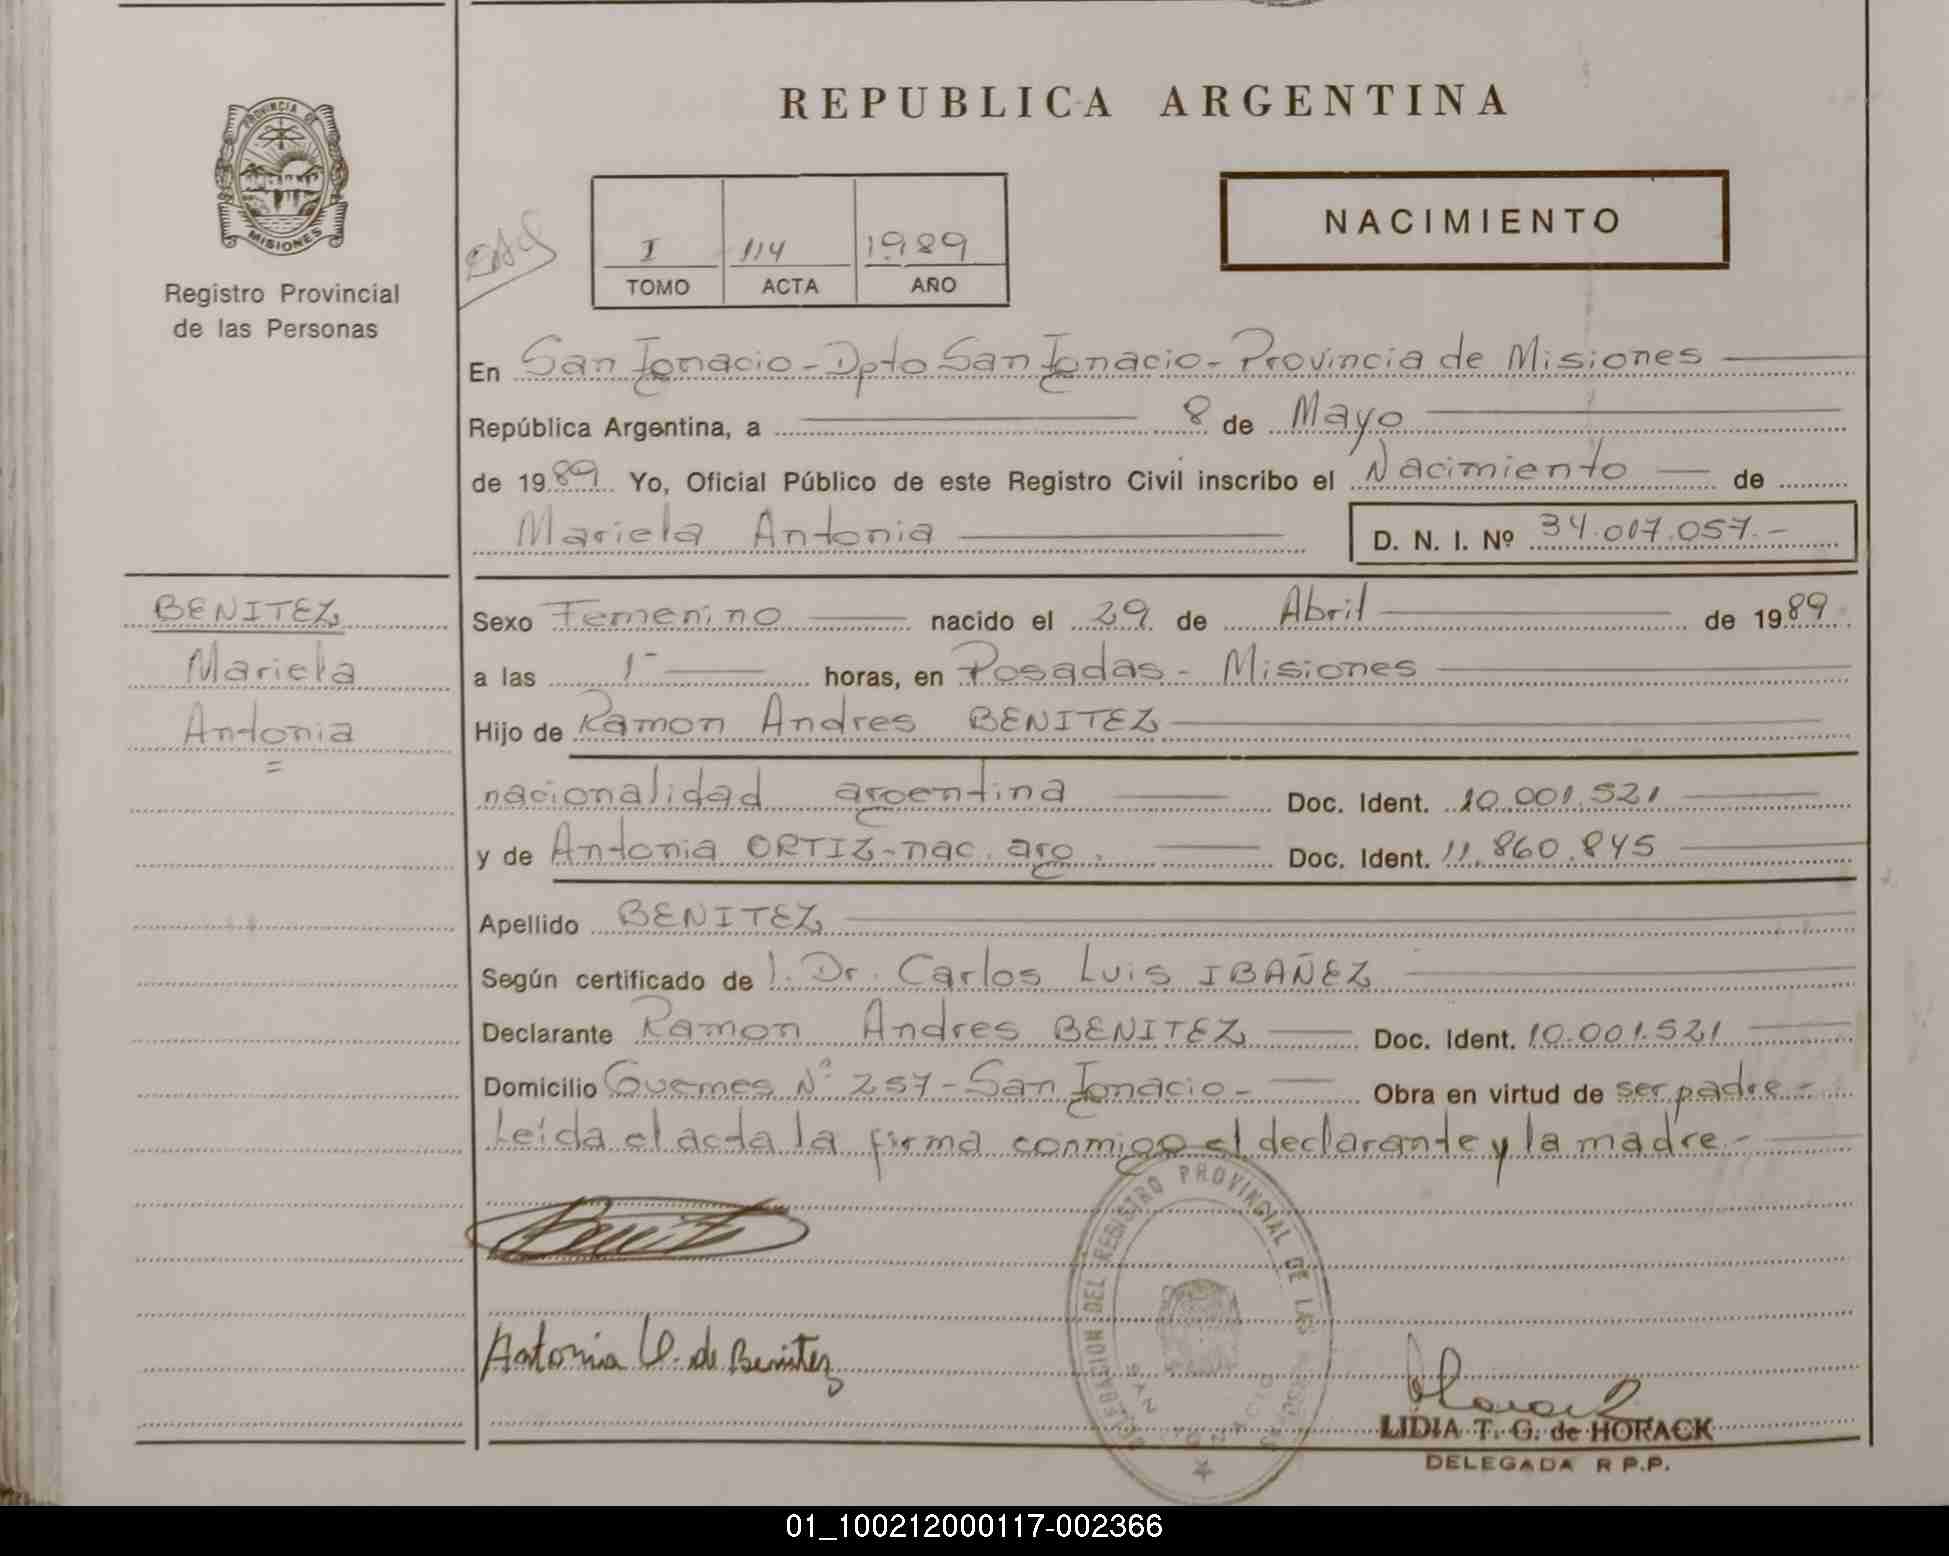 PROVINCIA DE
MISIONES
Registro Provincial
de las Personas
REPUBLICA ARGENTINA
NACIMIENTO
I 114 1989
TOMO ACTA AÑO
En San Ignacio - Dpto San Ignacio - Provincia de Misiones
República Argentina, a 8 de Mayo
de 1989 Yo, Oficial Público de este Registro Civil inscribo el Nacimiento de
Mariela Antonia D. N. I. Nº 34.017.057.-
BENITEZ
Mariela
Antonia
=
Sexo Femenino nacido el 29 de Abril de 1989
a las 1- horas, en Posadas - Misiones
Hijo de Ramon Andres BENITEZ
nacionalidad argentina Doc. Ident. 10.001.521
y de Antonia ORTIZ - nac. arg. Doc. Ident. 11.860.845
Apellido BENITEZ
Según certificado de l. Dr. Carlos Luis IBAÑEZ
Declarante Ramon Andres BENITEZ Doc. Ident. 10.001.521
Domicilio Guemes Nº 257 - San Ignacio - Obra en virtud de ser padre -
Leída el acta la firma conmigo el declarante y la madre.-
Benitez
Antonia O. de Benitez
DELEGACION DEL REGISTRO PROVINCIAL DE LAS
SAN IGNACIO
LIDIA T. G. de HORACK
DELEGADA R P.P.
01_100212000117-002366